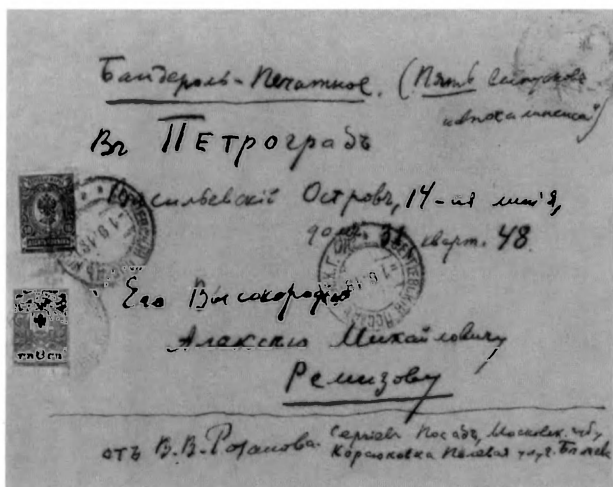 Бандероль-Печатное. (Пять выпусков
„Апокалипсиса“)
Въ Петроградъ
Васильевскій Островъ, 14-ая линія,
домъ 31 кварт. 48.
Его Высокородію
Алексѣю Михайловичу
Ремизову
отъ В. В. Розанова. Сергіевъ Посадъ, Московск. губ,
Полевая ул, д. Бѣляева